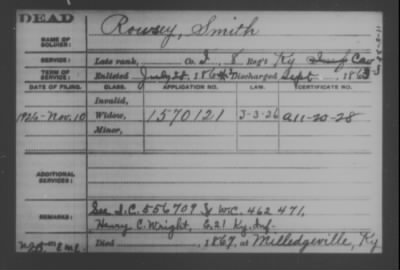 DEAD
NAME OF SOLDIER: Rowsey, Smith
SERVICE: Late rank, Co. I, 8 Reg't Ky Inf Cav
TERM OF SERVICE: Enlisted July 28, 1862 Discharged Sept , 1863
DATE OF FILING. CLASS. APPLICATION NO. LAW. CERTIFICATE NO.
Invalid,
1926-Nov. 10 Widow, 1570121 3-3-26 a11-20-28
Minor,
ADDITIONAL SERVICES:
REMARKS: See I.C. 556709 & W.C. 462 471,
Henry C. Wright, E. 21 Ky. Inf.
Died , 1869, at Milledgeville, Ky